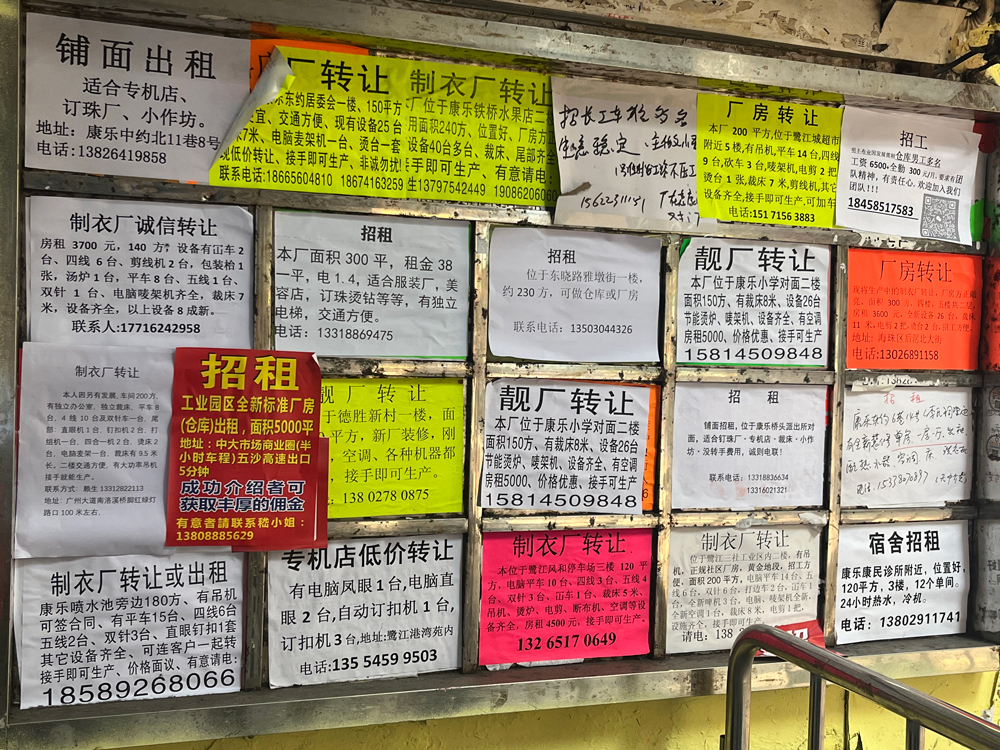 铺面出租
适合专机店、
订珠厂、小作坊。
地址：康乐中约北11巷8号
电话：13826419858
厂转让
乐东约居委会一楼、150平方
宜、交通方便、现有设备25台
7米、电脑麦架机一台、烫台一套
低价转让、接手即可生产、非诚勿扰!
:18665604810 18674163259
制衣厂转让
厂位于康乐铁桥水果店二
用面积240方、位置好、厂房方
设备40多台、裁床、尾部齐全
手即可生产、有意请电
13797542449 190862060
稳定
15622311151
厂房转让
本厂200平方,位于鹭江城超市
附近5楼,有吊机,平车14台,四线
9台,砍车3台,唛架机,电剪2把
烫台1张,裁床7米,剪线机,其它
设备齐全,接手即可生产,可加车
电话:151 7156 3883
招工
仓库男工多名
工资6500+全勤300元/月,要求有团
队精神,有责任心,欢迎加入我们
团队!!!
18458517583
制衣厂诚信转让
房租 3700 元，140 方，设备有冚车2
台、四线 6 台、剪线机2台，包装枱1
张，汤炉1台，平车8台，五线1台、
双针 1 台、电脑唛架机齐全，裁床7
米，设备齐全，以上设备8成新。
联系人:17716242958
招租
本厂面积300平，租金38
一平，电1.4，适合服装厂，美
容店，订珠烫钻等等，有独立
电梯，交通方便。
电话：13318869475
招租
位于东晓路雅墩街一楼，
约230方，可做仓库或厂房
联系电话：13503044326
靓厂转让
本厂位于康乐小学对面二楼
面积150方、有裁床8米、设备26台
节能烫炉、唛架机、设备齐全、有空调
房租5000、价格优惠、接手可生产
15814509848
厂房转让
现将生产中的制衣厂转让，厂房方正敞
亮，面积 300 方，四楼，五楼共二层
房租 3600 元，全新设备 26 台，裁床
11 米，电剪2把，烫台2台，招工方便。
地址:海珠区后滘北大街
电话:13026891158
制衣厂转让
本人因另有发展,车间200方,
有独立办公室，独立裁床，平车8
台，4 线 10 台及双针车一台，尾
部 直眼机1台，钉扣机2台，打
组机一台、四合一机2台，烫床2
台，电脑麦架一台，裁床有9.5米
长，二楼交通方便，有大功率吊机
接手就能生产。
联系方式：赖生 13312822113
地址：广州大道南洛溪桥脚红绿灯
路口100米左右。
招租
工业园区全新标准厂房
(仓库)出租，面积5000平
地址：中大市场商业圈(半
小时车程)五沙高速出口
5分钟
成功介绍者可
获取丰厚的佣金
有意者請联系嵇小姐：
13808885629
靓厂转让
于德胜新村一楼，面
平方，新厂装修，刚
空调，各种机器都
接手即可生产。
138 0278 0875
靓厂转让
本厂位于康乐小学对面二楼
面积150方、有裁床8米、设备26台
节能烫炉、唛架机、设备齐全、有空调
房租5000、价格优惠、接手可生产
15814509848
招 租
铺面招租，位于康乐桥头派出所对
面，适合钉珠厂·专机店·裁床·小作
坊·没转手费用，诚则电联!
联系电话：13318836634
13316021321
招 租
制衣厂转让或出租
康乐喷水池旁边180方、有吊机
可签合同、有平车15台、四线6台
五线2台、双针3台、直眼钉扣1套
其它设备齐全、可连客户一起转
接手即可生产、价格面议、有意请电:
18589268066
专机店低价转让
有电脑凤眼1台,电脑直
眼2台,自动订扣机1台,
订扣机3台,地址:鹭江港湾苑内
电话:135 5459 9503
制衣厂转让
本厂位于鹭江风和停车场三楼 120 平
方，电脑平车10台、四线3台、五线4
台、双针3台、冚车1台、裁床5米、
吊机、烫炉、电剪、断布机、空调等设
备齐全，房租 4500 元，接手即可生产。
132 6517 0649
制衣厂转让
位于鹭江三社工业区内二楼，有吊
机，正规社区厂房，黄金地段，招工方
便，面积 200 平方，电脑平车14台，五
线6台，双针6台，打边车2台，冚车1
台，全新啤机3台，电脑，唛架机全新，
全新空调1台，裁床8米，电剪1把，
设施齐全，接手即可生产。
请电：138
宿舍招租
康乐康民诊所附近，位置好，
120平方，3楼，12个单间。
24小时热水，冷机。
电话：13802911741